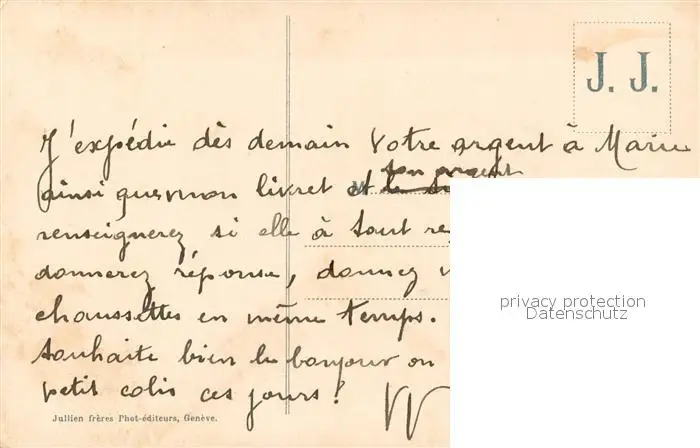 J. J.
J'expédie dès demain Votre argent à Marie
son argent
ainsi que mon livret et le
renseignerez si elle à tout
donnerez réponse, donnez
chaussettes en même temps.
souhaite bien le bonjour on
petit colis ces jours!
privacy protection
Datenschutz
Jullien frères Phot-éditeurs, Genève.